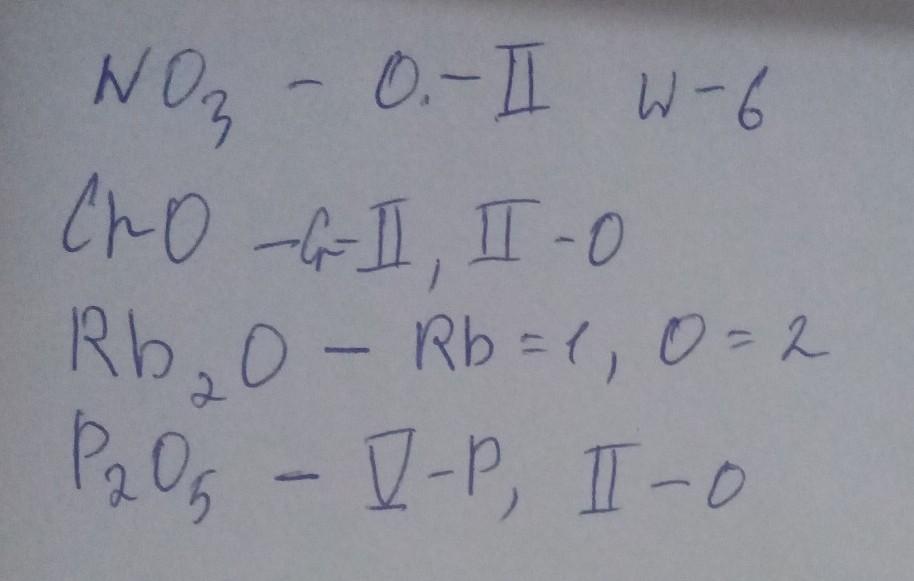 WO₃ - O.-II W-6
CrO -Cr-II, II-O
Rb₂O - Rb=1, O=2
P₂O₅ - V-P, II-O